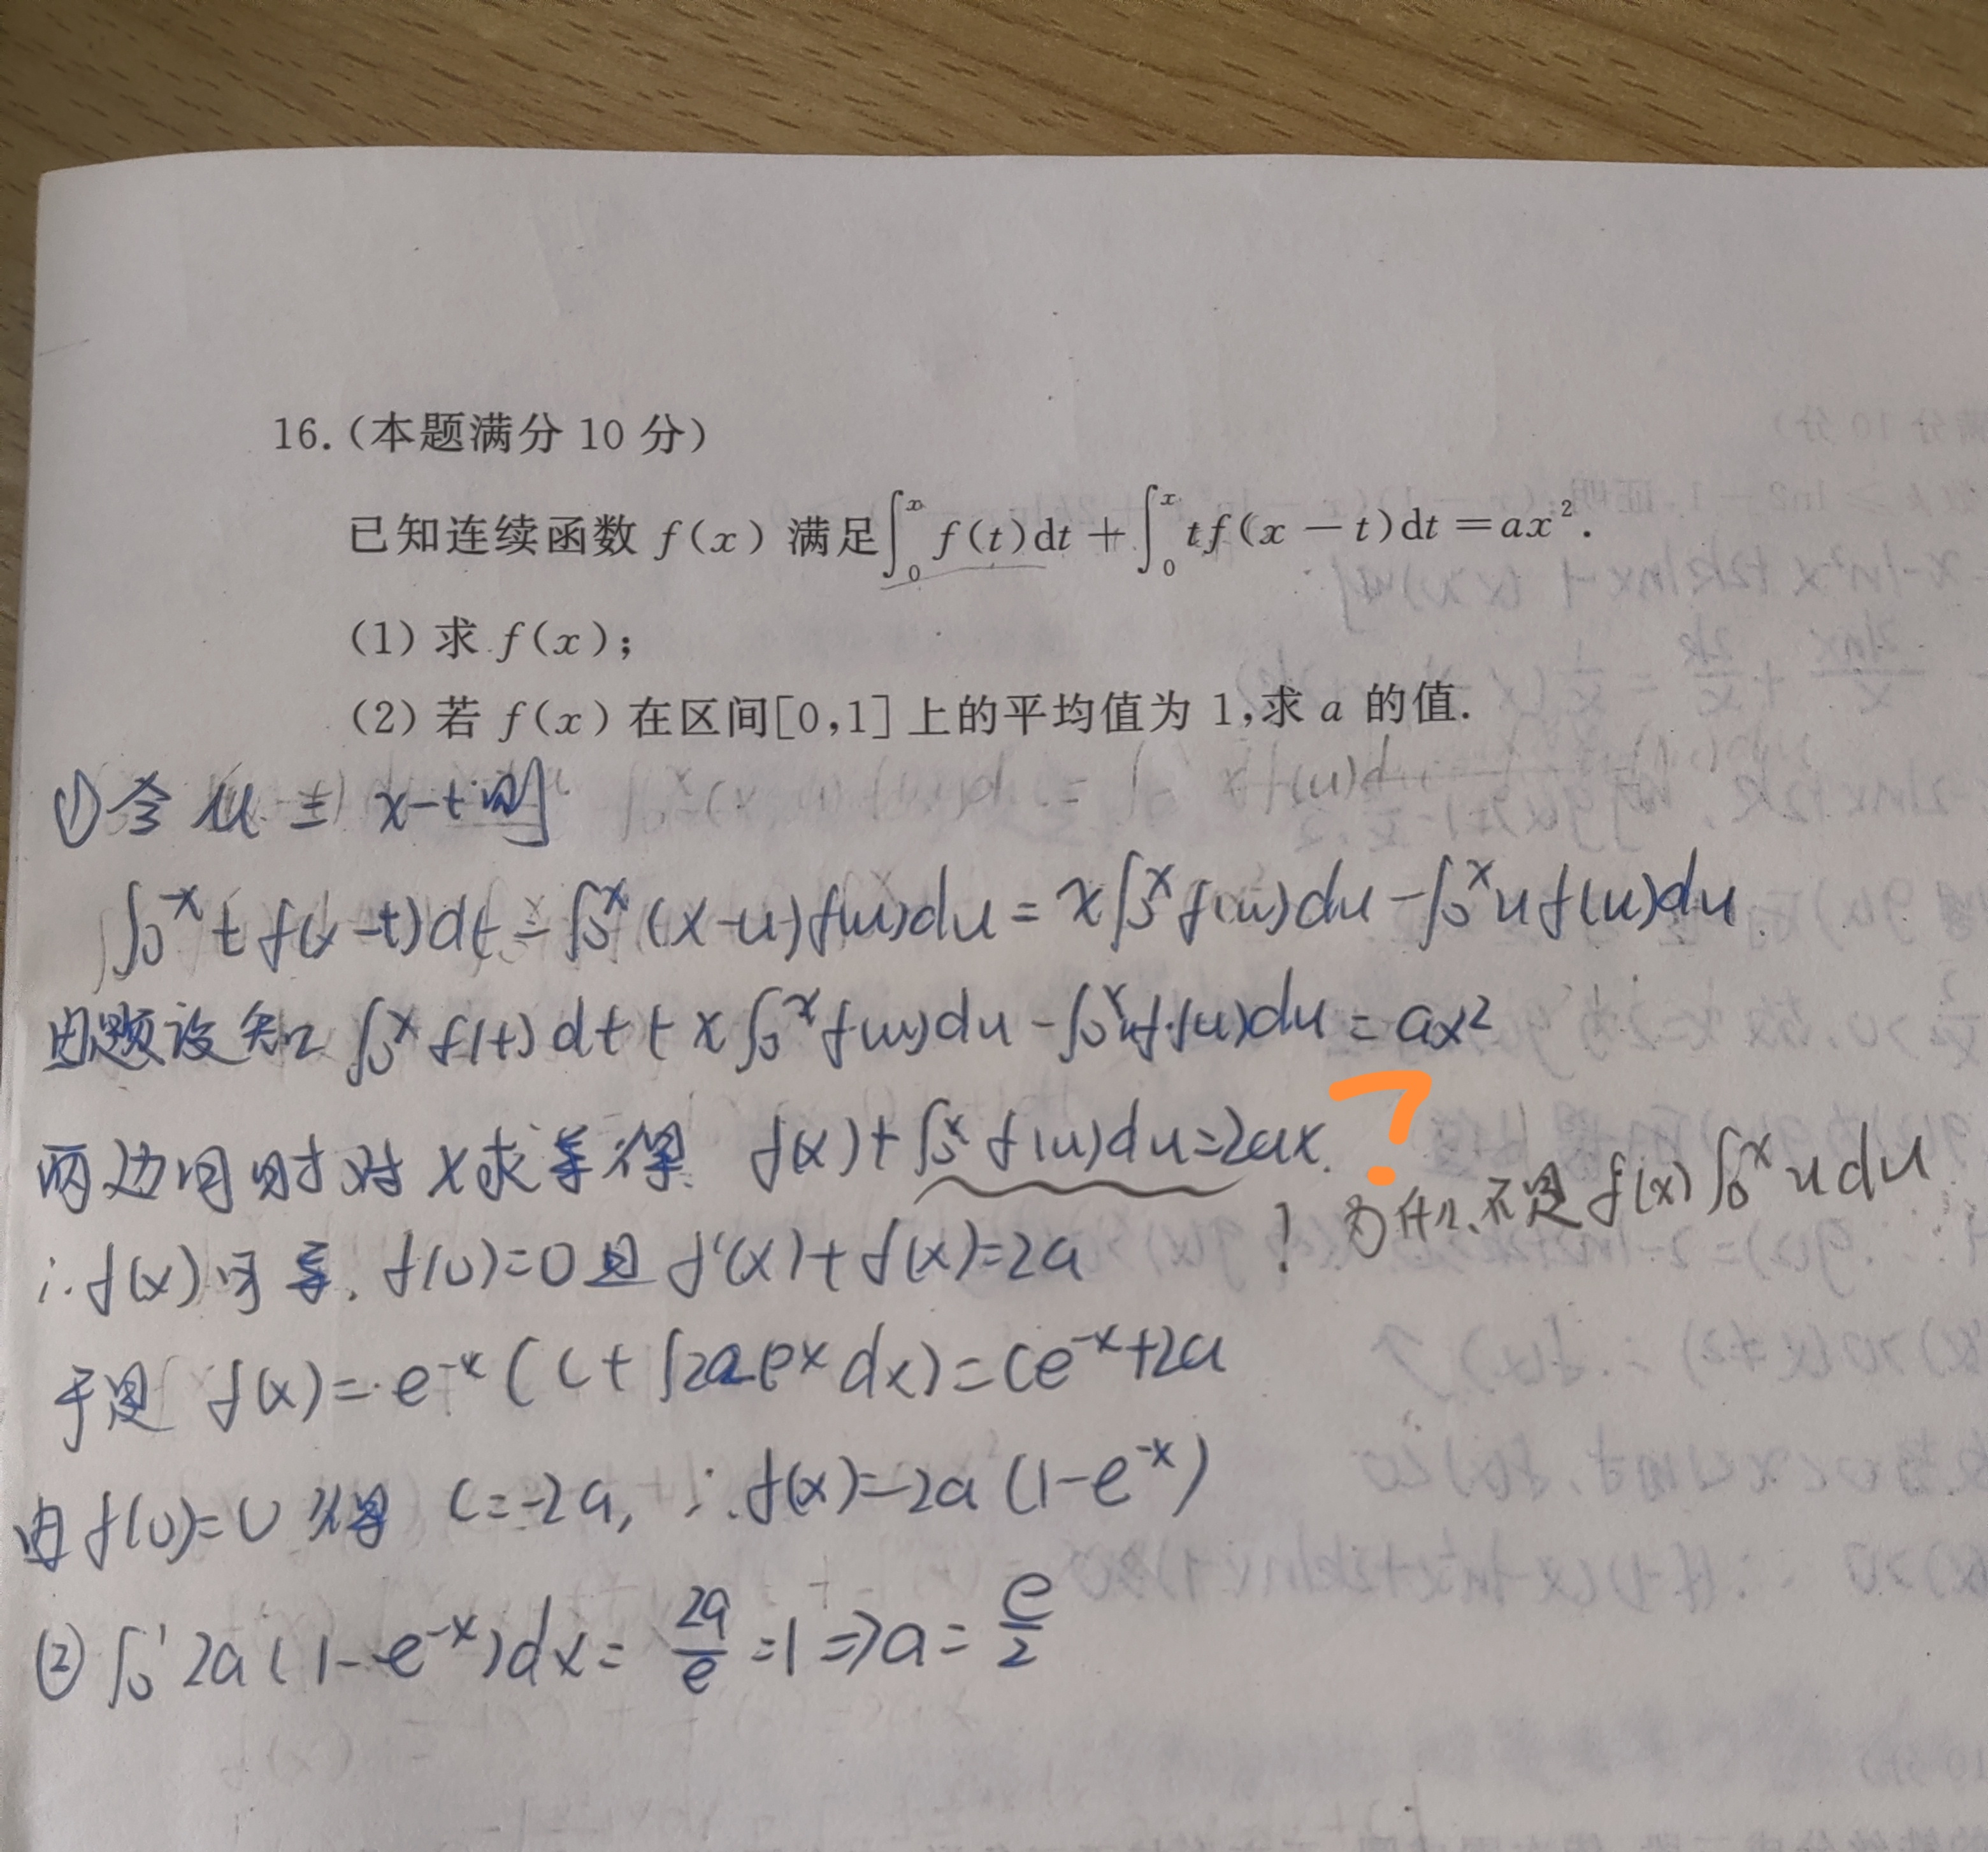 16.(本题满分 10 分)
已知连续函数 f(x) 满足∫₀ˣ f(t)dt + ∫₀ˣ tf(x-t)dt = ax².
(1) 求 f(x);
(2) 若 f(x) 在区间[0,1]上的平均值为 1,求 a 的值.
① 令 u = x-t 则
∫₀ˣ t f(x-t)dt = ∫₀ˣ (x-u)f(u)du = x∫₀ˣ f(u)du - ∫₀ˣ u f(u)du
由题设知 ∫₀ˣ f(t)dt + x∫₀ˣ f(u)du - ∫₀ˣ u f(u)du = ax²
两边同时对 x 求导得 f(x) + ∫₀ˣ f(u)du = 2ax. ?
! 为什么不是 f(x)∫₀ˣ u du
∴ f(x) 可导. f(0)=0 且 f'(x)+f(x)=2a
于是 f(x)=e⁻ˣ(C+∫2aeˣdx)=Ce⁻ˣ+2a
由 f(0)=0 得 C=-2a, ∴ f(x)=2a(1-e⁻ˣ)
② ∫₀¹ 2a(1-e⁻ˣ)dx = 2a/e =1 ⇒ a = e/2